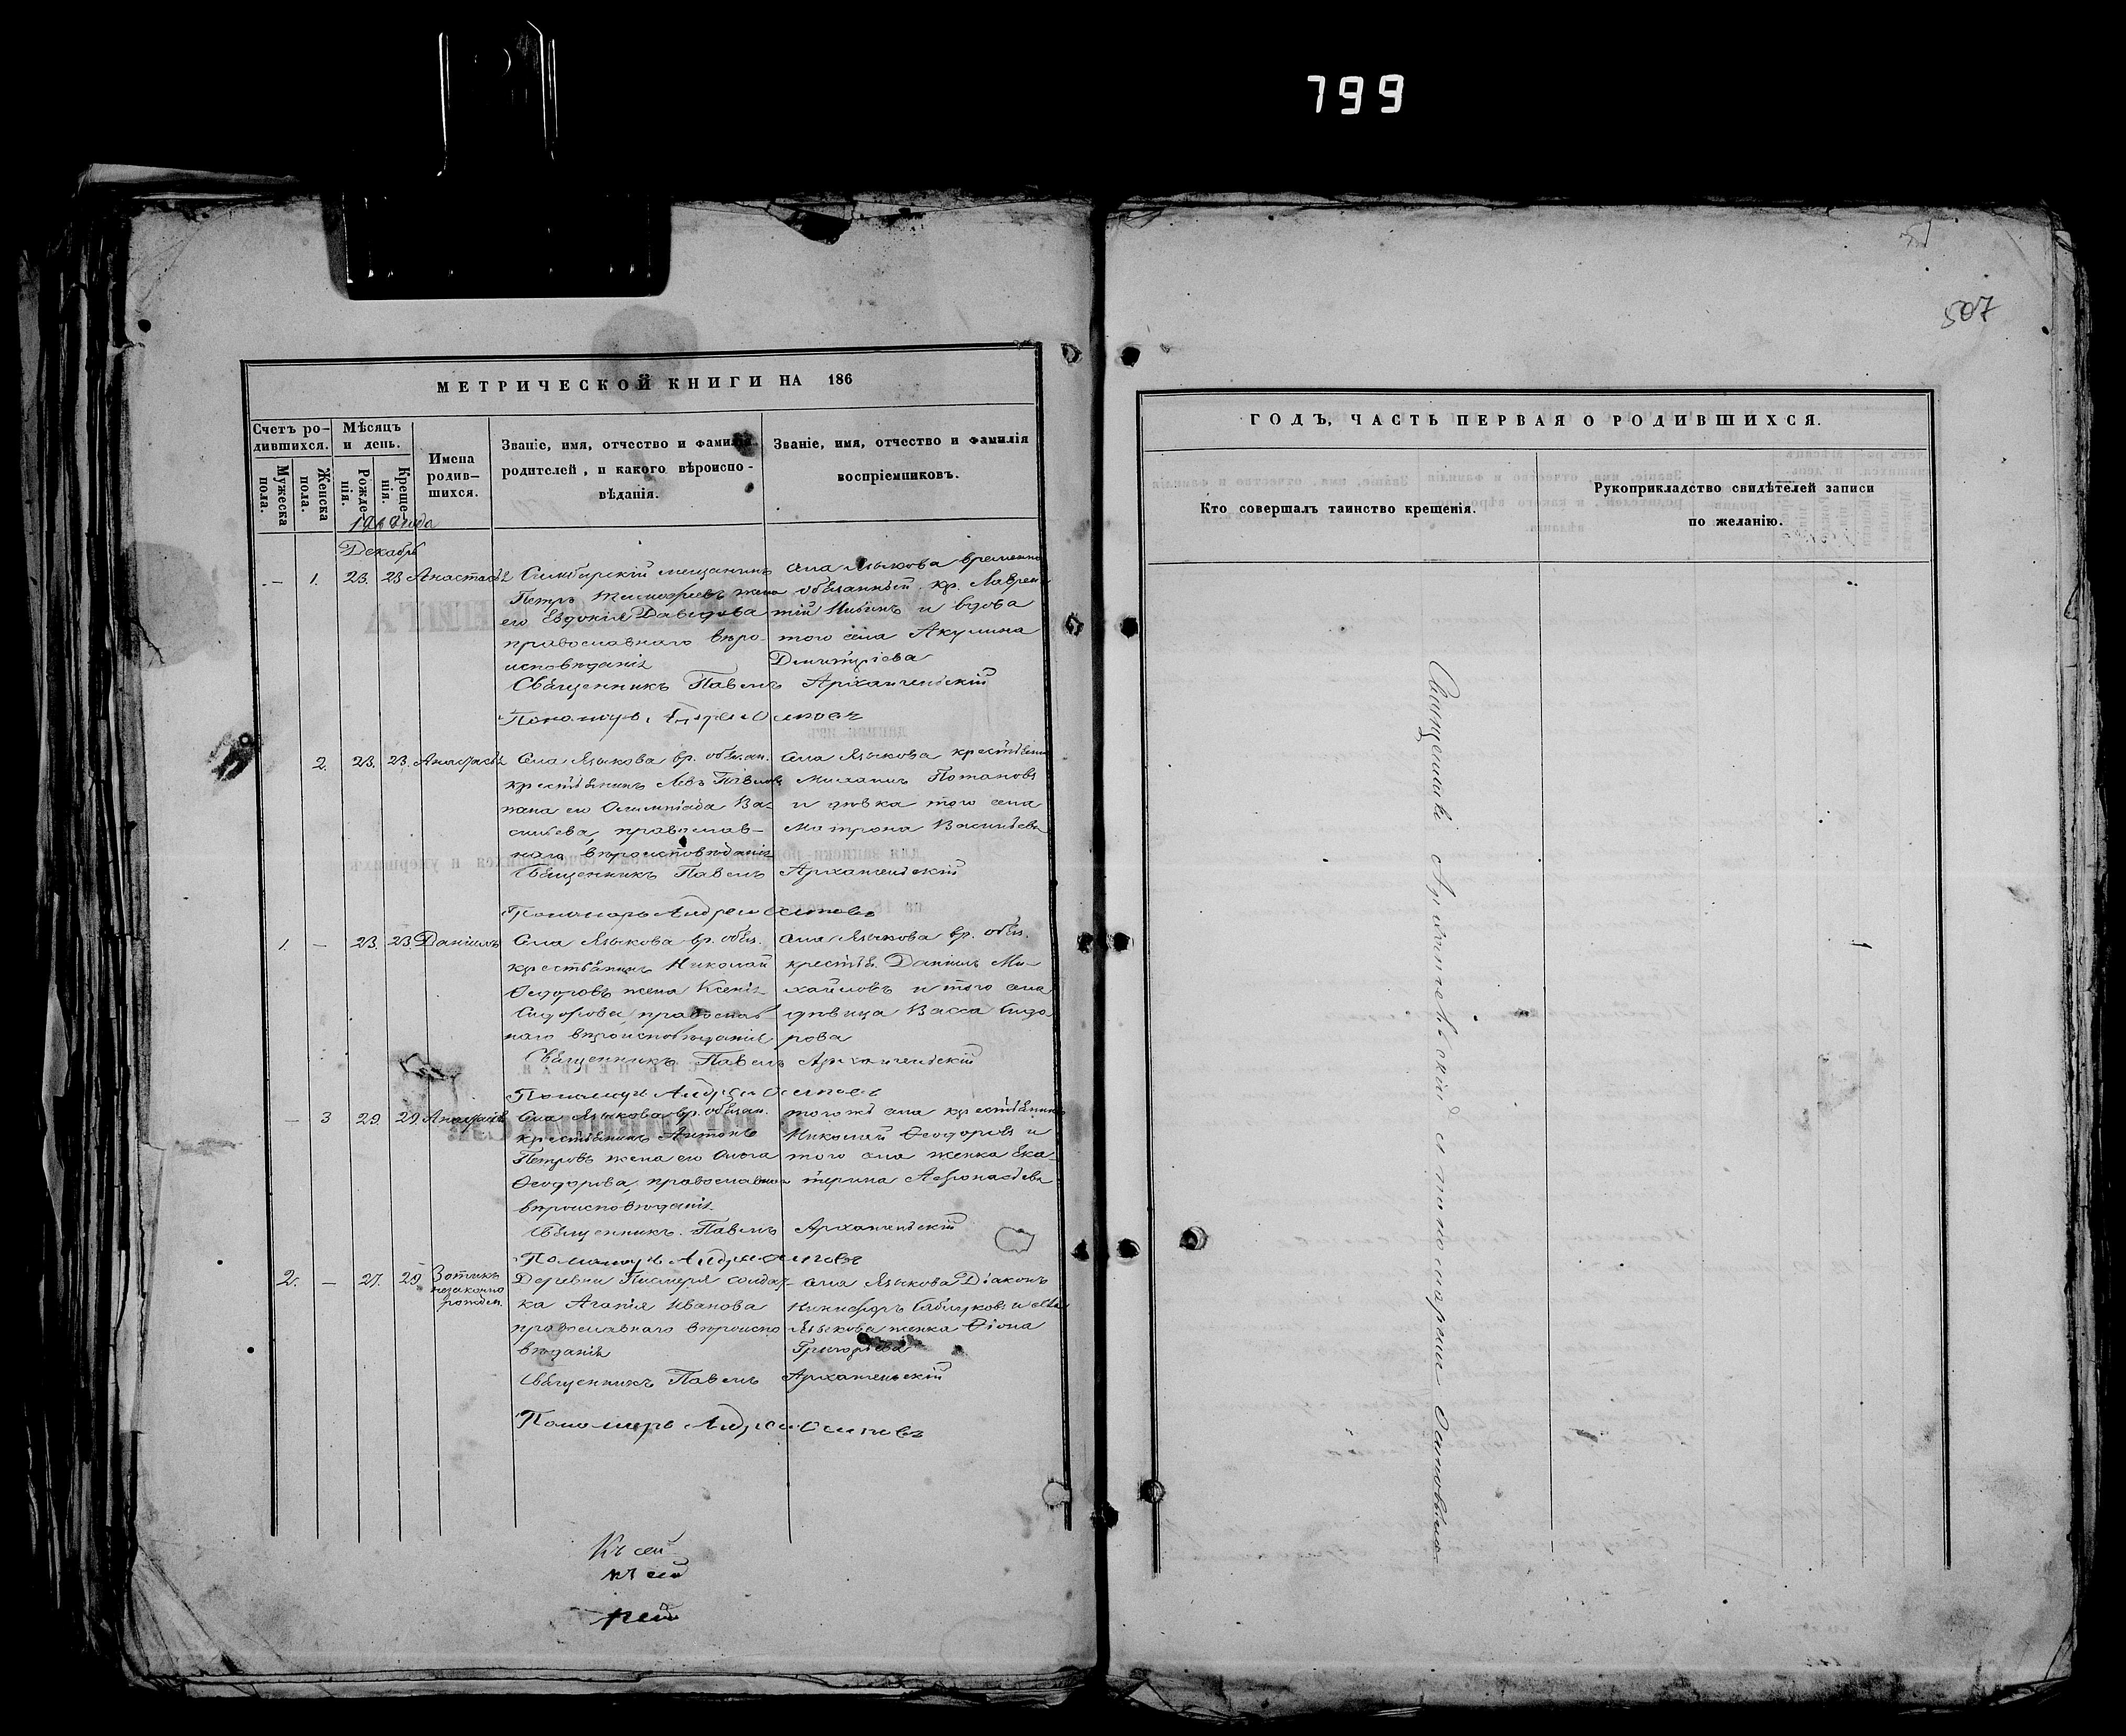 799
507
МЕТРИЧЕСКОЙ КНИГИ НА 186
Счетъ ро-
дившихся.
Мужеска
пола.
Женска
пола.
Мѣсяцъ
и день.
Рожде-
нія.
Креще-
нія.
Имена
родив-
шихся.
Званіе, имя, отчество и фамилія
родителей, и какого вѣроиспо-
вѣданія.
Званіе, имя, отчество и фамилія
воспріемниковъ.
года
Декабрь
— 1. 23. 23 Анастасія
Симбирскій мещанинъ
Петръ Тимофеевъ жена
его Евдокія Давидова
православнаго вѣро-
исповѣданія
села Языкова временно
обязанный кр. Лаврен-
тій и вдова
того села Акулина
Димитріева
Священникъ Павелъ Архангельскій
Пономарь Андрей Осиповъ
2. 23. 23.
Села Языкова вр. обязан.
крестьянинъ Левъ Павловъ
жена его Олимпіада Ва-
сильева, православ-
наго вѣроисповѣданія
Села Языкова крестьянинъ
Михаилъ Потаповъ
и дѣвка того села
Матрона Васильева
Священникъ Павелъ Архангельскій
Пономарь Андрей Осиповъ
1. — 23. 23 Даніилъ
Села Языкова вр. обяз.
крестьянинъ Николай
Ѳедоровъ жена Ксенія
Сидорова, православ-
наго вѣроисповѣданія
Села Языкова вр. обяз.
крестьян. Даніилъ Ми-
хайловъ и того села
дѣвица Васса Сидо-
рова
Священникъ Павелъ Архангельскій
Пономарь Андрей Осиповъ
— 3 29. 29.
Села Языкова вр. обязан.
крестьянинъ Антонъ
Петровъ жена его Ольга
Ѳеодорова, православнаго
вѣроисповѣданія
того же села крестьянинъ
Николай Ѳеодоровъ и
того села женка Ека-
терина Афонасьева
Священникъ Павелъ Архангельскій
Пономарь Андрей Осиповъ
2. — 27. 29 Зотикъ
незаконно
рожден.
Деревни солдат-
ка Агапія Иванова
православнаго вѣроиспо-
вѣданія
села Языкова Діаконъ
Никифоръ и села
Языкова женка Ѳіона
Григорьева
Священникъ Павелъ Архангельскій
Пономарь Андрей Осиповъ
Къ сей
къ сей
ГОДЪ, ЧАСТЬ ПЕРВАЯ О РОДИВШИХСЯ.
Кто совершалъ таинство крещенія.
Рукоприкладство свидѣтелей записи
по желанію.
Священникъ Архангельскій съ пономаремъ Осиповымъ